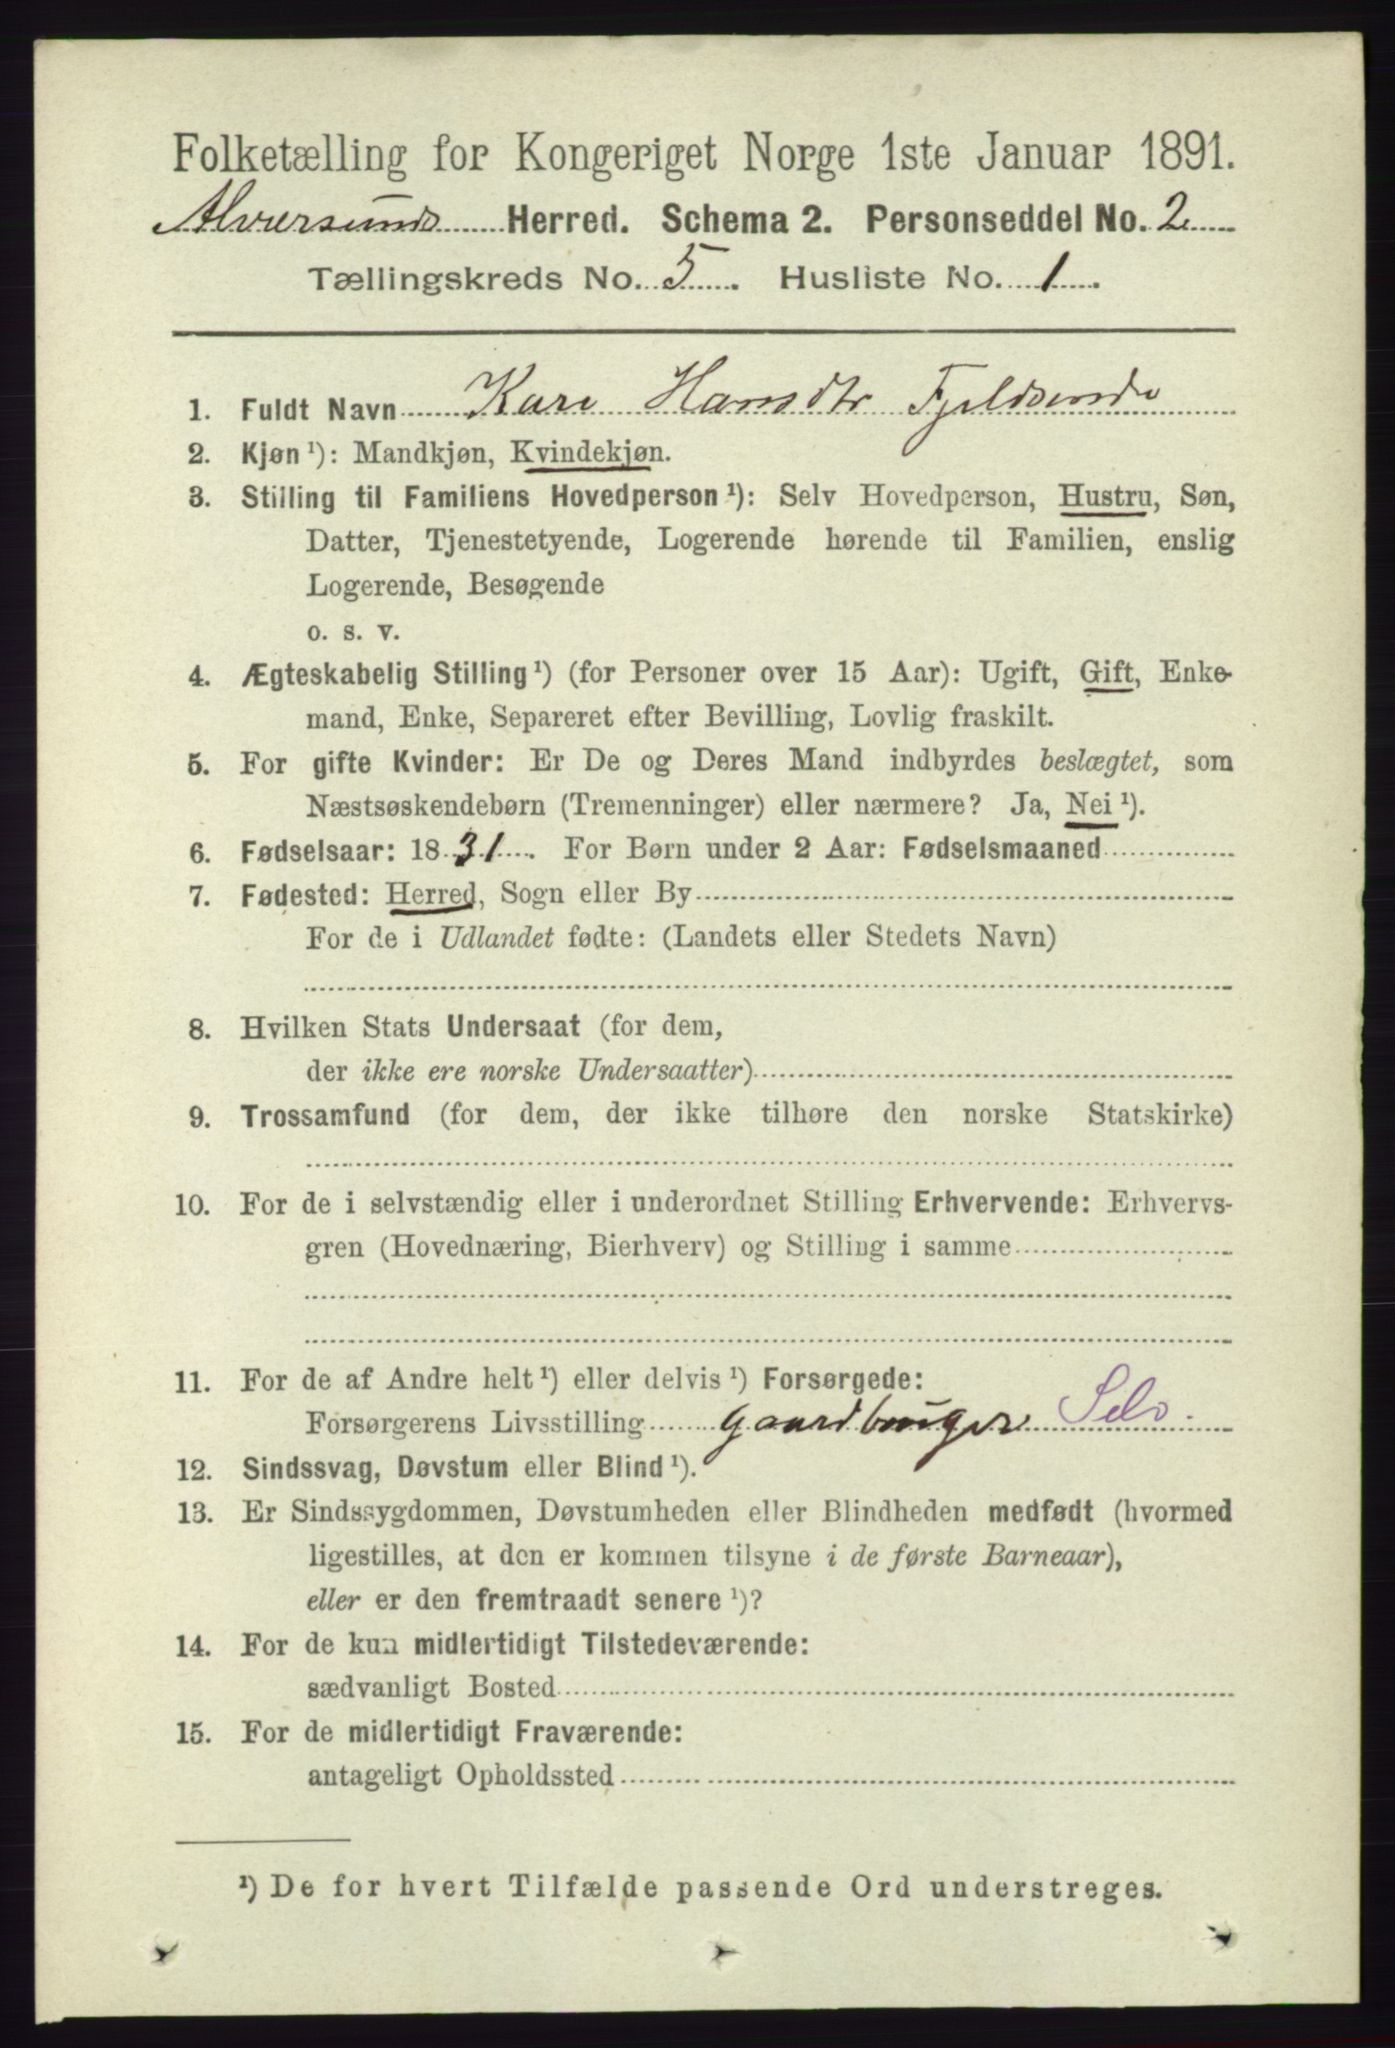 Folketælling for Kongeriget Norge 1ste Januar 1891.
Alversunds Herred. Schema 2. Personseddel No. 2
Tællingskreds No. 5. Husliste No. 1.
1. Fuldt Navn Kari Hansdtr Fjeldsende
2. Kjøn ¹): Mandkjøn, Kvindekjøn.
3. Stilling til Familiens Hovedperson ¹): Selv Hovedperson, Hustru, Søn,
Datter, Tjenestetyende, Logerende hørende til Familien, enslig
Logerende, Besøgende
o. s. v.
4. Ægteskabelig Stilling ¹) (for Personer over 15 Aar): Ugift, Gift, Enke-
mand, Enke, Separeret efter Bevilling, Lovlig fraskilt.
5. For gifte Kvinder: Er De og Deres Mand indbyrdes beslægtet, som
Næstsøskendebørn (Tremenninger) eller nærmere? Ja, Nei ¹).
6. Fødselsaar: 1831. For Børn under 2 Aar: Fødselsmaaned
7. Fødested: Herred, Sogn eller By
For de i Udlandet fødte: (Landets eller Stedets Navn)
8. Hvilken Stats Undersaat (for dem,
der ikke ere norske Undersaatter)
9. Trossamfund (for dem, der ikke tilhøre den norske Statskirke)
10. For de i selvstændig eller i underordnet Stilling Erhvervende: Erhvervs-
gren (Hovednæring, Bierhverv) og Stilling i samme
11. For de af Andre helt ¹) eller delvis ¹) Forsørgede:
Forsørgerens Livsstilling gaardbruger Selv.
12. Sindssvag, Døvstum eller Blind ¹).
13. Er Sindssygdommen, Døvstumheden eller Blindheden medfødt (hvormed
ligestilles, at den er kommen tilsyne i de første Barneaar),
eller er den fremtraadt senere ¹)?
14. For de kun midlertidigt Tilstedeværende:
sædvanligt Bosted
15. For de midlertidigt Fraværende:
antageligt Opholdssted
¹) De for hvert Tilfælde passende Ord understreges.